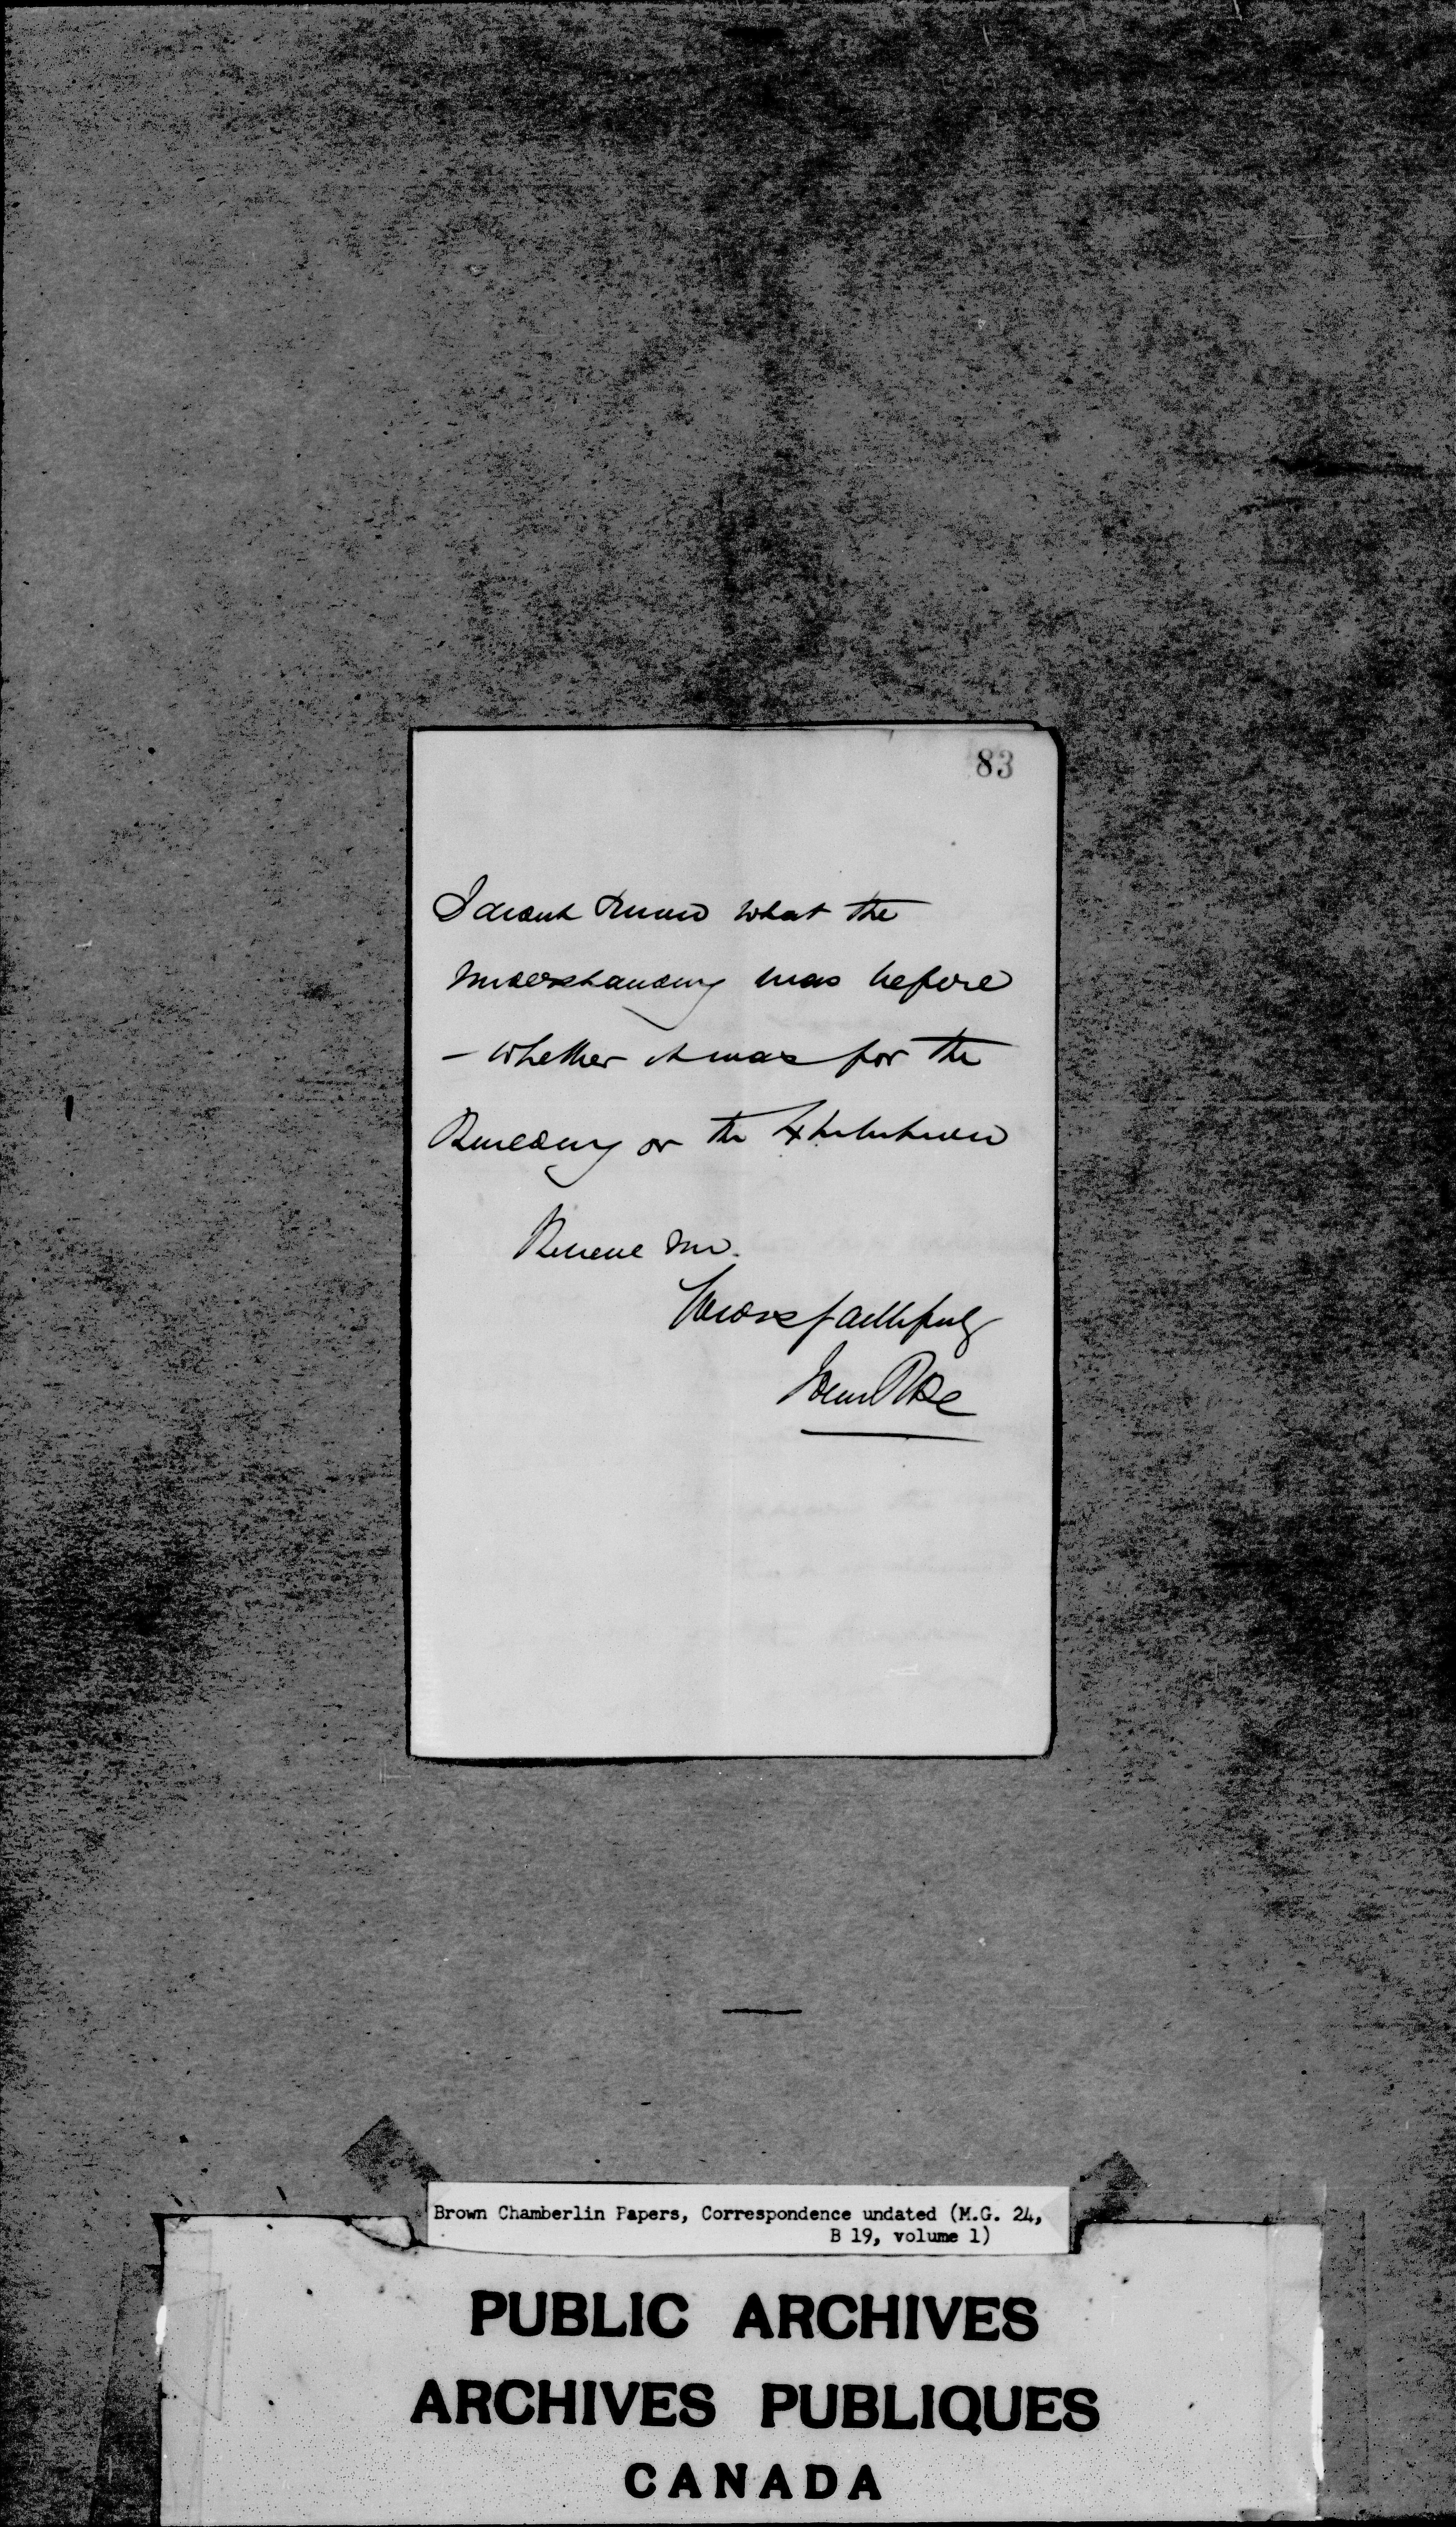 83
I dont know what the
understanding was before
– whether it was for the
Building or the Exhibition
Believe me.
Yours faithfully
John Rose
Brown Chamberlin Papers, Correspondence undated (M.G. 24,
B 19, volume 1)
PUBLIC ARCHIVES
ARCHIVES PUBLIQUES
CANADA